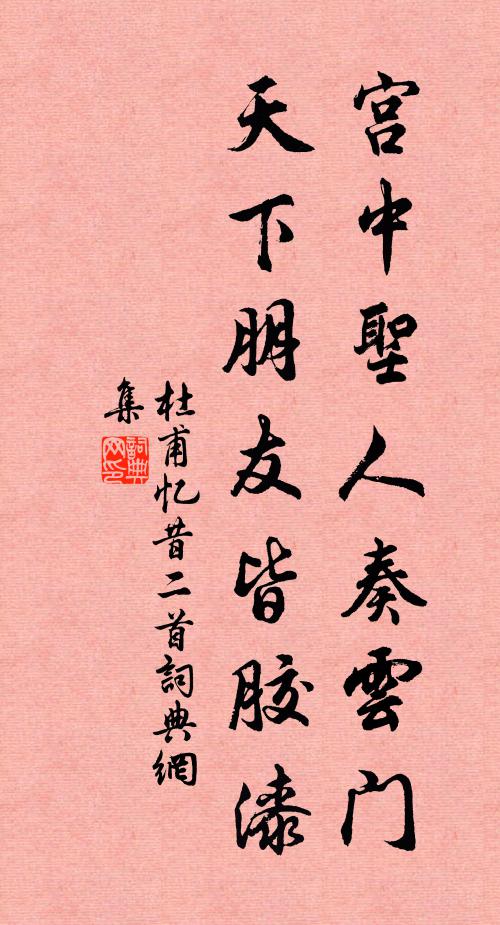 宫中聖人奏雲门
天下朋友皆胶漆
杜甫忆昔二首詞典網
集
詞典网印